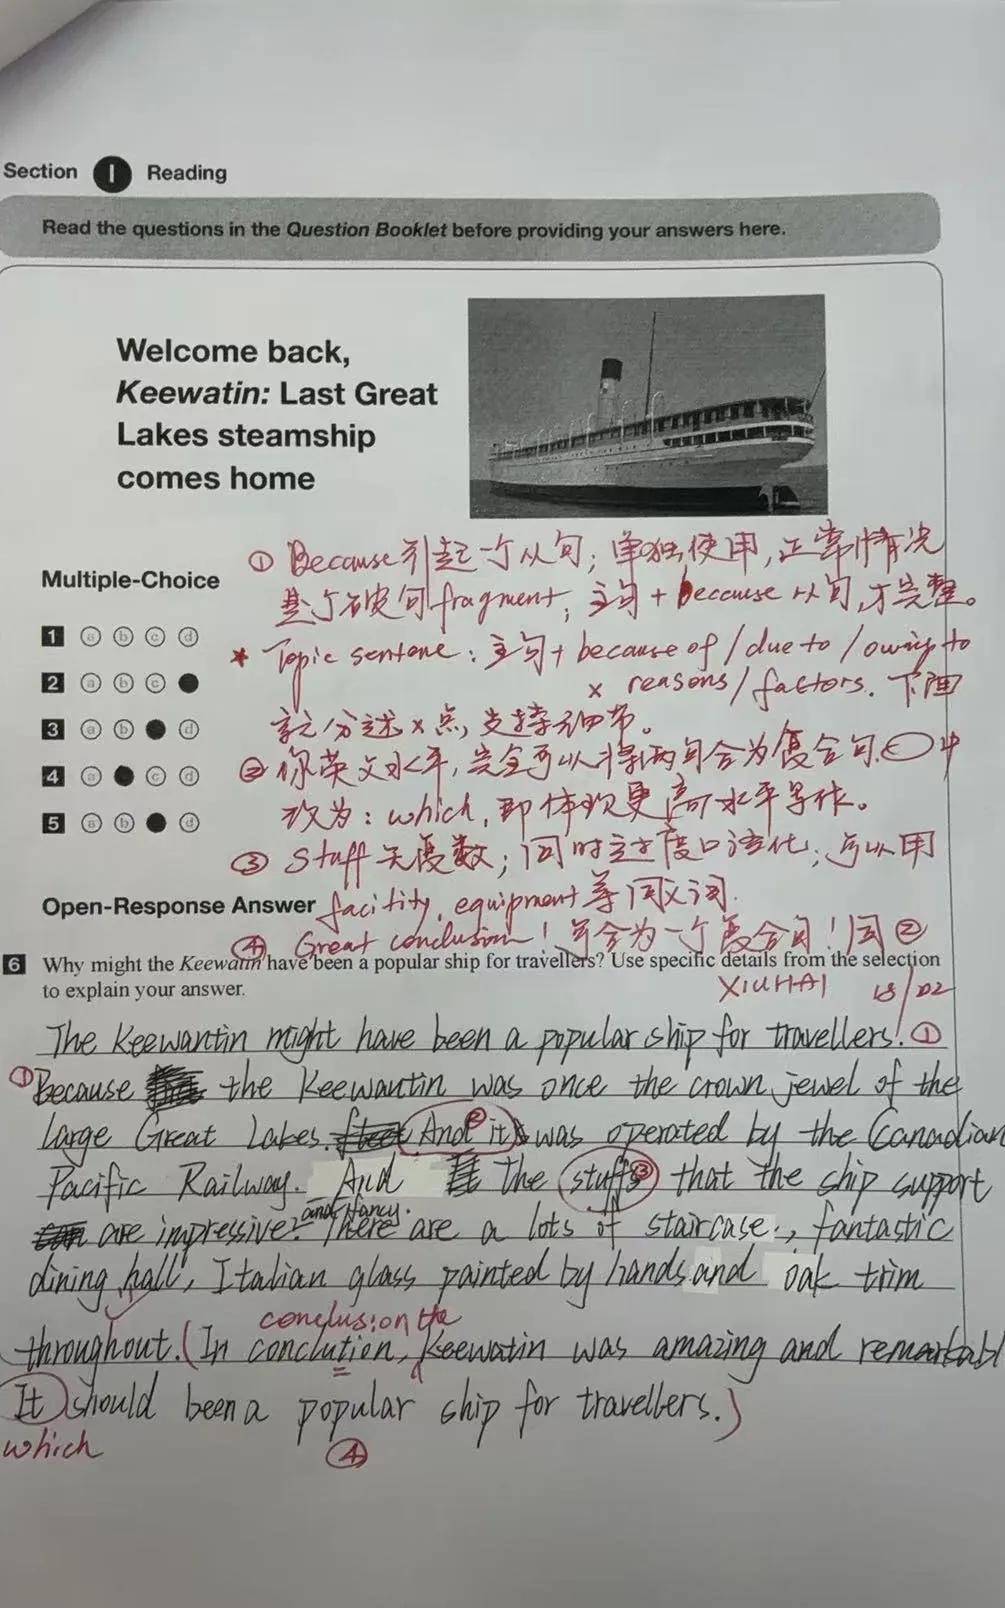 Section I Reading
Read the questions in the Question Booklet before providing your answers here.
Welcome back,
Keewatin: Last Great
Lakes steamship
comes home
Multiple-Choice
1 a b c d
2 a b c
3 a b d
4 a c d
5 a b d
① Because引起一个从句；单独使用，正常情况
是个破句fragment；主句+because从句，才完整。
* Topic sentence: 主句+because of/due to/owing to
x reasons/factors. 下面
就分述x点，支持细节。
② 你英文水平，完全可以将两句合为复合句.○中
改为：which, 即体现更高水平写作。
③ Stuff无复数；同时过度口语化；可以用
facitity, equipment等同义词.
④ Great conclusion! 可合为一个复合句！同②
XIUHAI 18/02
Open-Response Answer
6 Why might the Keewatin have been a popular ship for travellers? Use specific details from the selection
to explain your answer.
The Keewantin might have been a popular ship for travellers. ①
① Because the Keewantin was once the crown jewel of the
large Great Lakes. And ② it was operated by the Canadian
Pacific Railway. And the stuffs ③ that the ship support
are impressive and fancy. There are a lots of staircase, fantastic
dining hall, Italian glass painted by hands and oak trim
conclusion the
throughout. (In conclution, Keewatin was amazing and remarkabl
It should been a popular ship for travellers.)
which ④